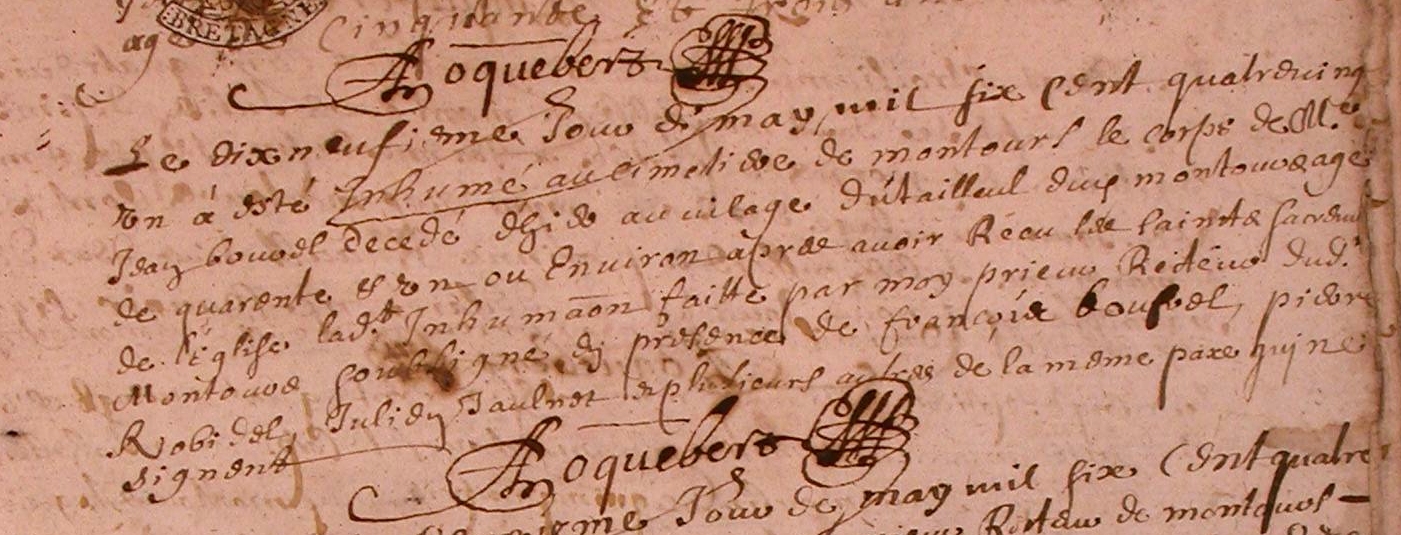 BRETAGNE
Cinquante et trois
ag
Roquebert
Le dixneufieme Jour de may mil six cent quatrevinq
un á esté Inhumé au Cimetiere de montours le corps de
Jean bourel decedé hier au vilage du tailleul montours agé
de quarente et un ou Environ apres avoir Receu les saints sacrem
de l'Eglise lad.te Inhumaon faitte par moy prieur Recteur dud.t
Montours soubsigné en presence de françois bourel, pierre
Robidel, Julien Jaulnet et plusieurs autres de la meme paxe qui ne
signent
Roquebert
Jour de may mil six Cent quatre
Recteur de montours